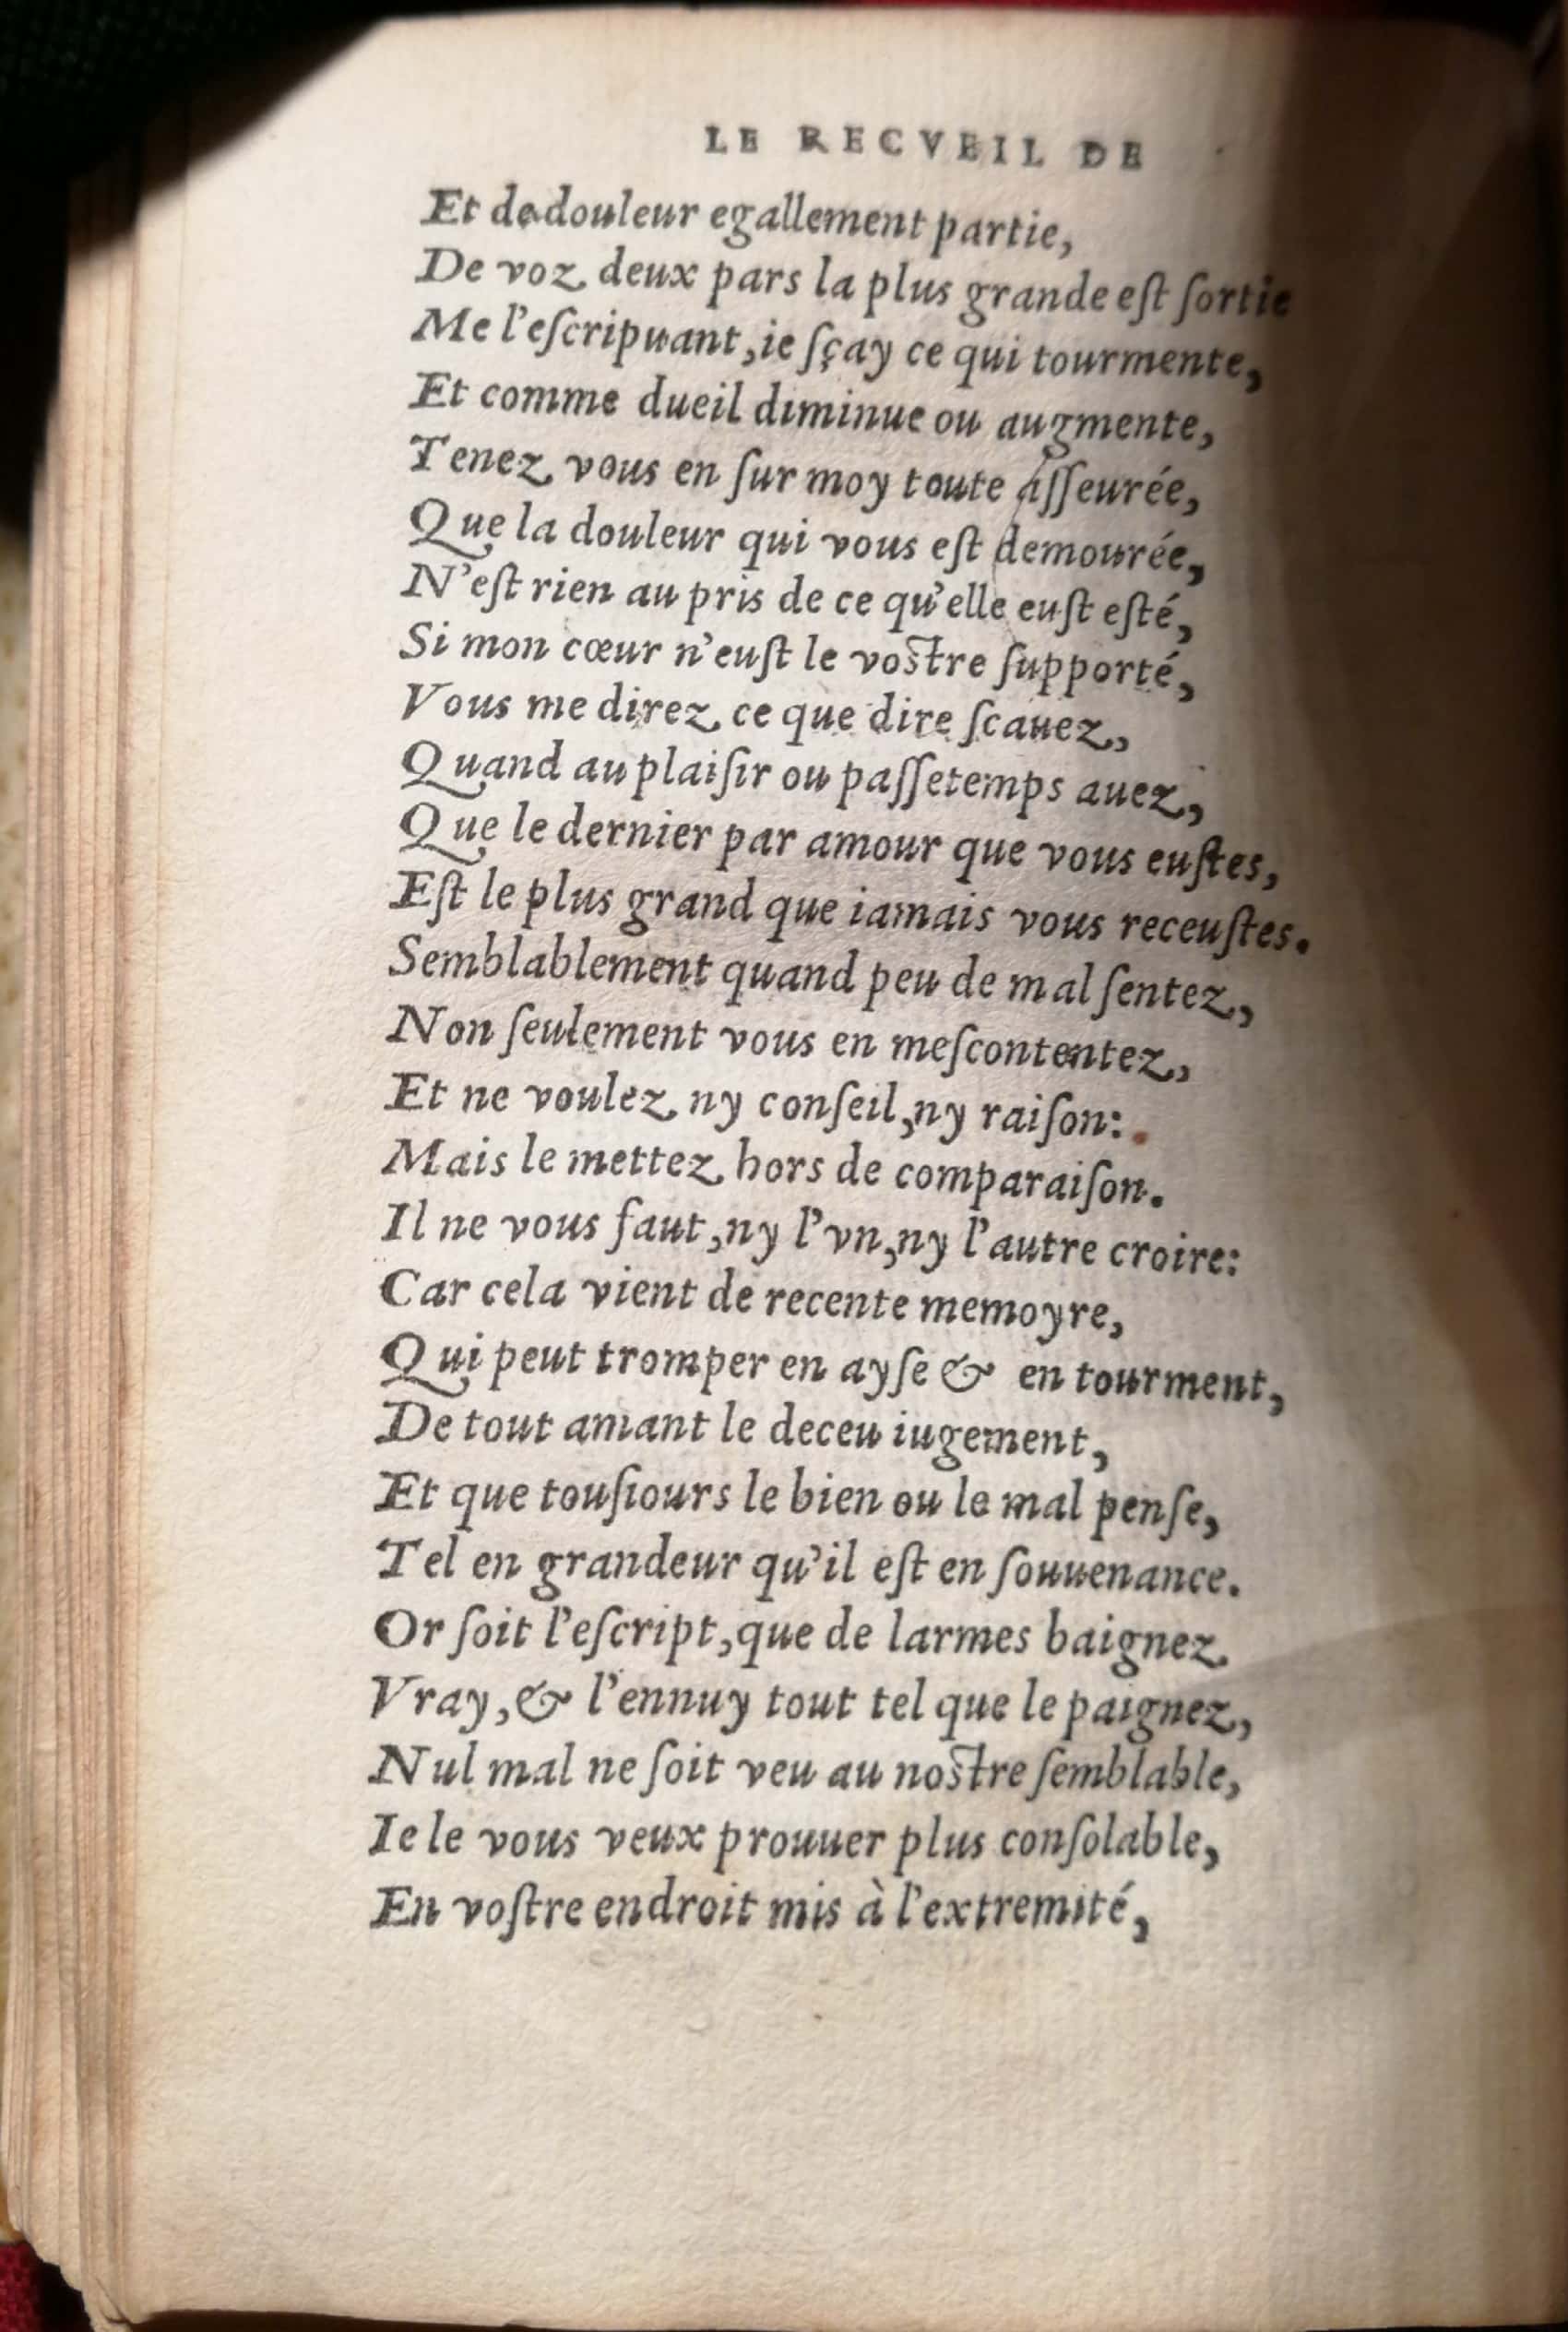 LE RECVEIL DE
Et de douleur egallement partie,
De voz deux pars la plus grande eſt ſortie
Me l'eſcripuant, ie ſçay ce qui tourmente,
Et comme dueil diminue ou augmente,
Tenez vous en ſur moy toute aſſeurée,
Que la douleur qui vous eſt demourée,
N'eſt rien au pris de ce qu'elle euſt eſté,
Si mon cœur n'euſt le voſtre ſupporté,
Vous me direz ce que dire ſcauez,
Quand au plaiſir ou paſſetemps auez,
Que le dernier par amour que vous euſtes,
Eſt le plus grand que iamais vous receuſtes.
Semblablement quand peu de mal ſentez,
Non ſeulement vous en meſcontentez,
Et ne voulez ny conſeil, ny raiſon:
Mais le mettez hors de comparaiſon.
Il ne vous faut, ny l'vn, ny l'autre croire:
Car cela vient de recente memoyre,
Qui peut tromper en ayſe & en tourment,
De tout amant le deceu iugement,
Et que touſiours le bien ou le mal penſe,
Tel en grandeur qu'il eſt en ſouuenance.
Or ſoit l'eſcript, que de larmes baignez
Vray, & l'ennuy tout tel que le paignez,
Nul mal ne ſoit veu au noſtre ſemblable,
Ie le vous veux prouuer plus conſolable,
En voſtre endroit mis à l'extremité,